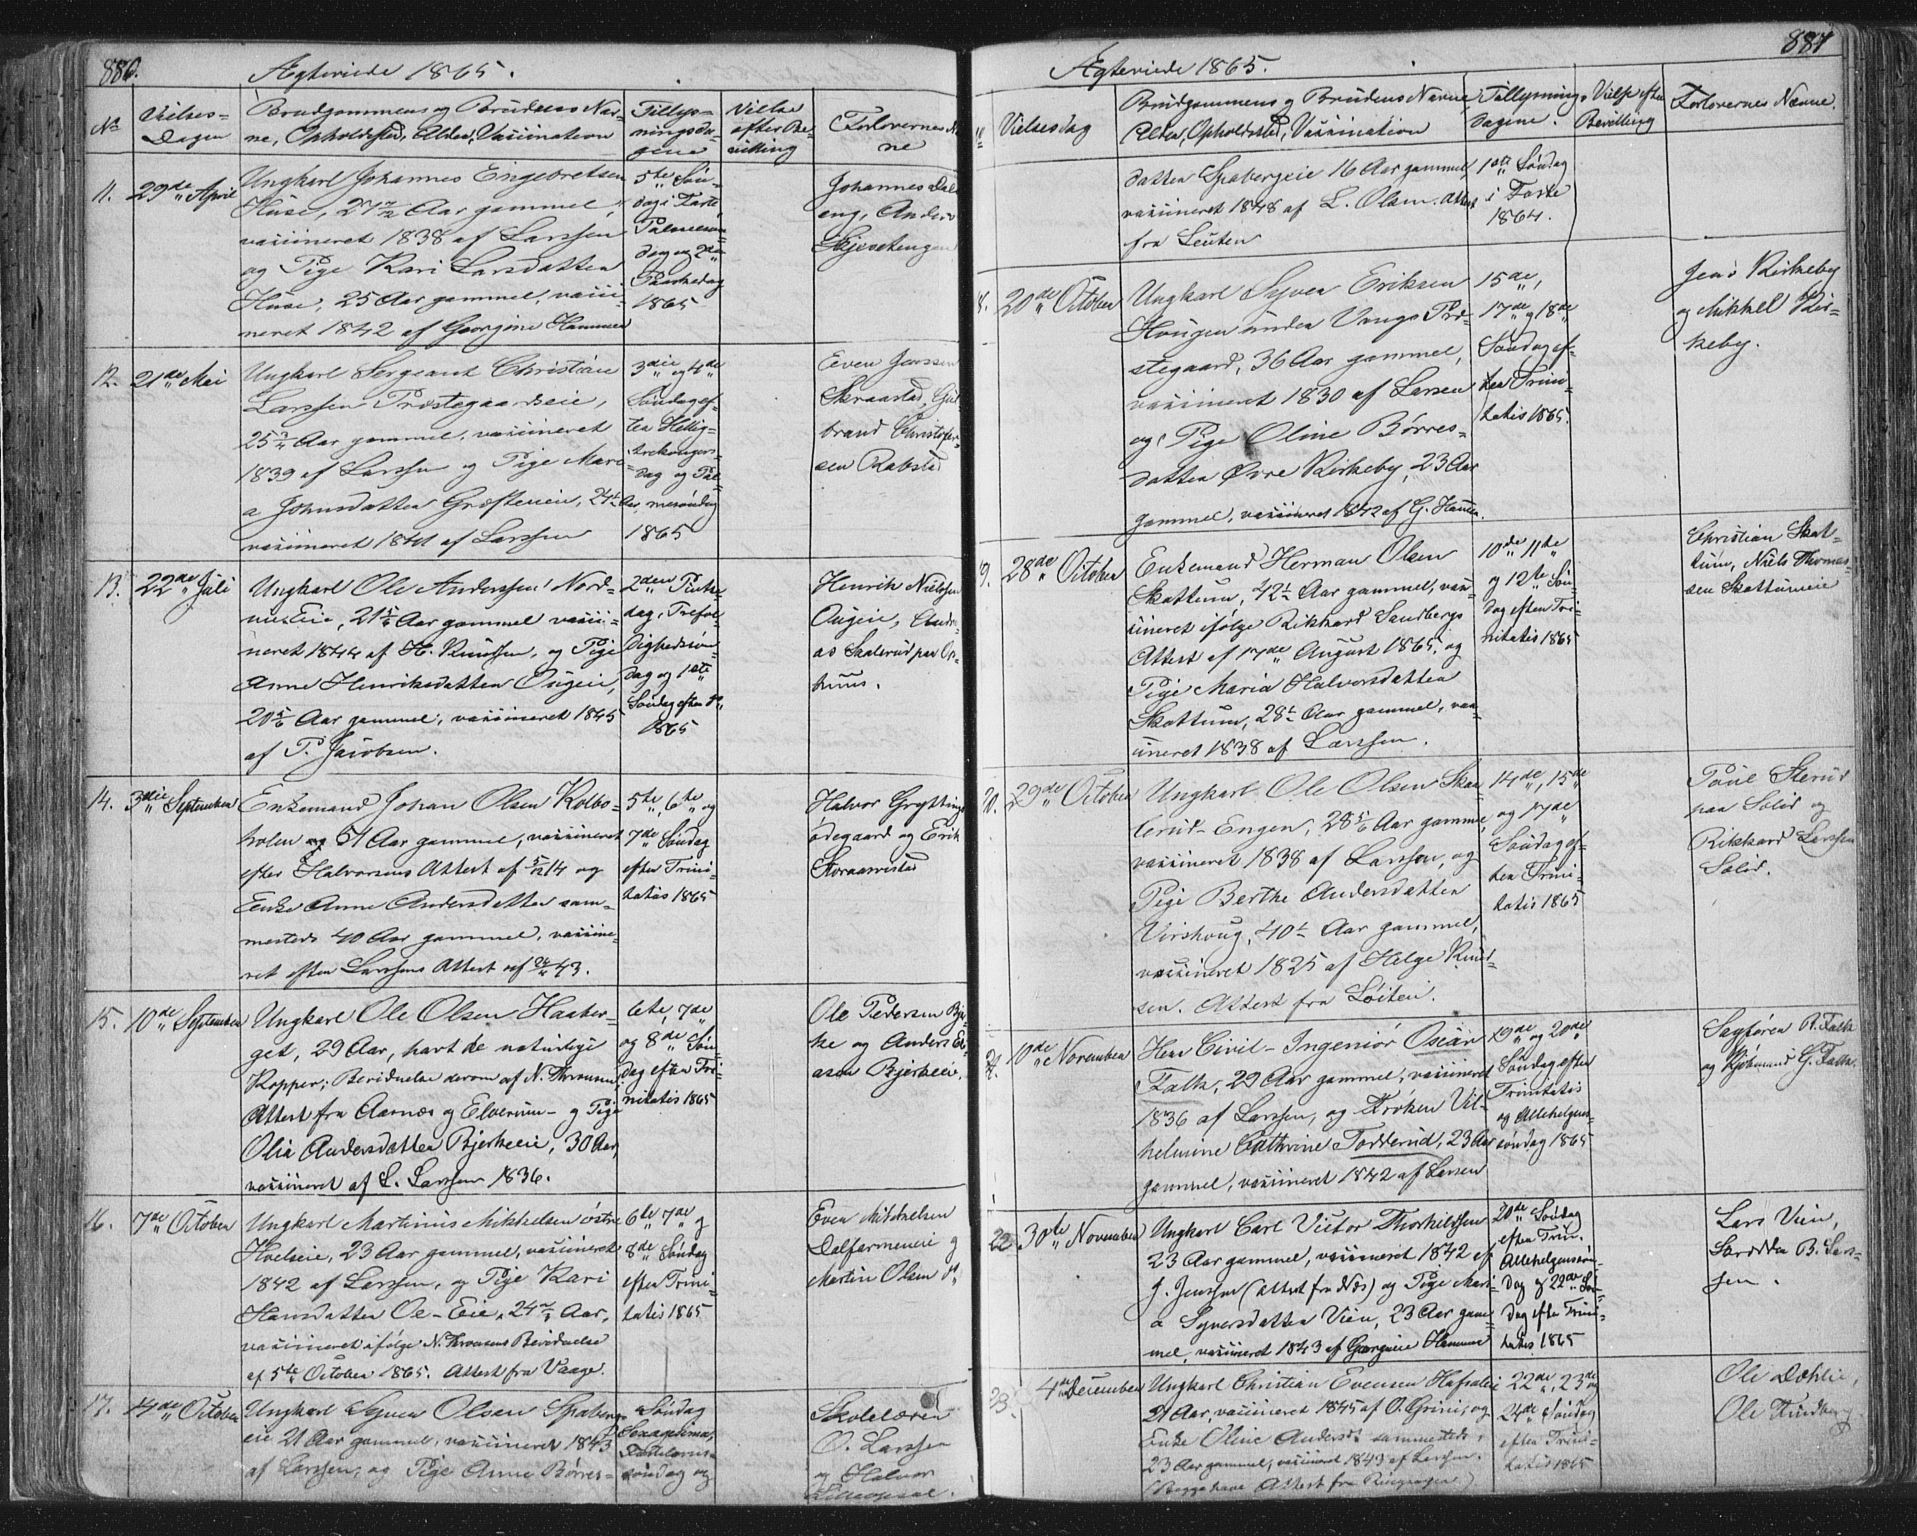 886.
Ægteviede 1865.
No
Vielses-
Dagen
Brudgommens og Brudens Nav-
ne, Opholdssted, Alder, Vaccination
Tillys-
ningsda-
gene
Vielse
efter Be-
villing
Forlovernes Na-
ne
11.
29de April
Ungkarl Johannes Engebretsen
Huse, 27 Aar gammel,
vaccineret 1838 af Larssen
og Pige Kari Larsdatter
Huse, 25 Aar gammel, vacci-
neret 1842 af Georgine Hammer
5te Søn-
dag i Faste,
Palmesøn-
dag og 2den
Paaskedag
1865
Johannes Dal-
eng, Anders
Skjesetengen
12.
21de Mai
Ungkarl Sergeant Christian
Larssen Prestegaardseie,
25 Aar gammel, vaccineret
1839 af Larssen og Pige Mari-
a Johnsdatter Grøftereie, 24 Aar,
vaccineret 1841 af Larssen
3die og 4de
Søndag ef-
ter Hellig-
trekonger-
dag og Pal-
mesøndag
1865
Even Jenssen
Skraastad, Gul-
brand Christofer-
sen Rabstad
13.
22de Juli
Ungkarl Ole Anderssen Nord-
huseie, 21 Aar gammel vacci-
neret 1844 af H. Knudsen, og Pige
Anne Henriksdatter Ougeie,
20 Aar gammel, vaccineret 1845
af P. Jacobsen.
2den Pintse-
dag, Trefol-
dighedssøn-
dag og 1ste
Søndag efter do
1865
Henrik Nielssen
Ougeie, Andre-
as Skalerud paa Op-
huus.
14.
3die September
Enkemand Johan Olsen Kolbo-
holen og 51 Aar gammel, vaccineret
efter Halvorsens Attest af 5/12 14 og
Enke Anne Andersdatter sam-
mesteds 40 Aar gammel, vaccine-
ret efter Larssens Attest af 43.
5te, 6te og
7de Søndag
efter Trini-
tatis 1865
Halvor Grytting
ødegaard og Erik
Skraarvestad
15.
10de September
Ungkarl Ole Olsen Haaber-
get, 29 Aar, havt de naturlige
Kopper; Bevidnelse derom af N. Thronsen,
Attest fra Aarnæs og Elverum- og Pige
Olia Andersdatter Bjerkeeie, 30 Aar,
vaccineret af L. Larssen 1836.
6te, 7de
og 8de Søn-
dag efter Tri-
nitatis 1865
Ole Pedersen Bjer-
ke og Anders Eli-
assen Bjerkeeie.
16.
7de October
Ungkarl Martinus Mikkelsen østre
Hoelseie, 23 Aar gammel, vaccineret
1842 af Larssen, og Pige Kari
Hansdatter Oe-Eie, 24 Aar,
vaccineret ifølge N. Thronsens Bevidnelse
af 5te October 1865. Attest fra Vaage.
6te, 7de og
8de Søndag
efter Trini-
tatis 1865
Even Mikkelsen
Dalfarmeneie og
Martin Olsen do
17.
14de October
Ungkarl Syver Olsen Spaberg-
eie 21 Aar gammel, vaccineret 1843
af Larssen, og Pige Anne Børres-
Søndag
Sexagesima,
Fastelavns-
søndag og
Skolelærer
O. Larssen
og Halvor
Lilleopsal.
887
Ægteviede 1865.
Vielsesdag
Brudgommens og Brudens Navne,
Alder, Opholdssted, Vaccination
Tillysnings-
dagene.
Vielse efter
Bevilling
Forlovernes Navne.
datter Spabergeie 16 Aar gammel,
vaccineret 1848 af L. Olsen. Attest
fra Leuten
1ste Søndag
i Faste
1864.
8.
20de October
Ungkarl Syver Eriksen
Hougen under Vangs Præ-
stegaard, 36 Aar gammel,
vaccineret 1830 af Larsen
og Pige Oline Børres-
datter Øvre Kirkeby, 23 Aar
gammel, vaccineret 1842 af G. Hammer.
15de,
17de og 18de
Søndag ef-
ter Trini-
tatis 1865.
Jens Kirkeby
og Mikkel Kir-
keby.
9.
28de October
Enkemand Herman Olsen
Skattum, 42 Aar gammel, vac-
cineret ifølge Rikhard Sandbergs
Attest af 17de August 1865, og
Pige Maria Halvorsdatter
Skattum, 28 Aar gammel, vac-
cineret 1838 af Larssen.
10de 11de
og 12te Søn-
dag efter Tri-
nitatis 1865
Christian Skat-
tum, Niels Thomes-
sen Skattumeie
20.
29de October
Ungkarl Ole Olsen Skaa-
lerud-Engen, 28 Aar gammel,
vaccineret 1838 af Larssen, og
Pige Berthe Andersdatter
Virshoug, 40 Aar gammel,
vaccineret 1825 af Helge Knud-
sen. Attest fra Løiten.
14de, 15de
og 17de
Søndag ef-
ter Trini-
tatis 1865
Poul Sterud
paa Solid og
Rikhard Larssen
Solid.
21.
10de November
Herr Civil-Ingeniør Oscar
Falk, 29 Aar gammel, vaccineret
1836 af Larssen, og Frøken Vil-
helmine Cathrine Todderud, 23 Aar
gammel, vaccineret 1842 af Larsen
19de og 20de
Søndag efter
Trinitatis
og Allehelgens-
søndag 1865
Sagfører R. Falk
og Kjøbmand G. Falk.
22.
30te November
Ungkarl Carl Victor Thorkildsen
23 Aar gammel, vaccineret 1842 af
J. Jenssen (Attest fra Næs) og Pige Mari-
a Syversdatter Vien, 23 Aar gam-
mel, vaccineret 1843 af Georgine Hammer
20de Søndag
efter Trin.
Allehelgenssøn-
dag og 22de Søn-
dag efter Trini-
tatis 1865
Lars Vien,
B. Lars-
sen.
23.
4de December
Ungkarl Christian Evensen Hafsaleie
21 Aar, vaccineret 1845 af O. Grini, og
Enke Oline Andersdt sammesteds,
23 Aar gammel, vaccineret 1843 af Larssen.
(Begge have Attest fra Ringsager)
22de, 23de og
24de Søndag
efter Trini-
tatis 1865
Ole Dæhlie,
Ole Hindberg